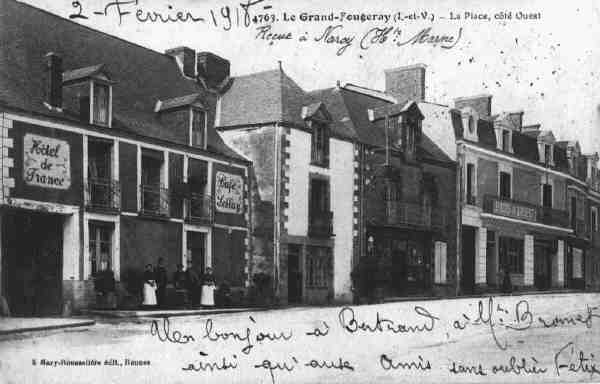 2 - Février 1918
4763. Le Grand-Fougeray (I.-et-V.) — La Place, côté Ouest
Reçue à Narcy (Hte Marne)
Hôtel
de
France
Café
Un bonjour à Bertrand, à Mr
ainsi qu'aux Amis sans oublier Félix
E Mary-Rousselière édit., Rennes